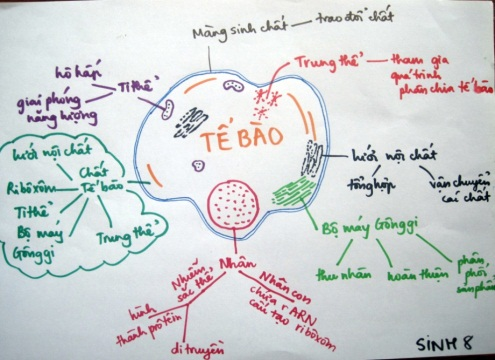 Màng sinh chất — trao đổi chất
Trung thể
tham gia
quá trình
phân chia tế bào
hô hấp
giải phóng
năng lượng
Ti thể
TẾ BÀO
lưới nội chất
Ribôxôm
Ti thể
Bộ máy
Gônggi
Chất
Tế bào
Trung thể
lưới nội chất
tổng hợp
vận chuyển
các chất
Bộ máy Gônggi
thu nhân
hoàn thiện
phân
phối
sản phẩm
Nhân
Nhiễm
sắc thể
hình
thành prôtêin
di truyền
Nhân con
chứa rARN
cấu tạo ribôxôm
SINH 8